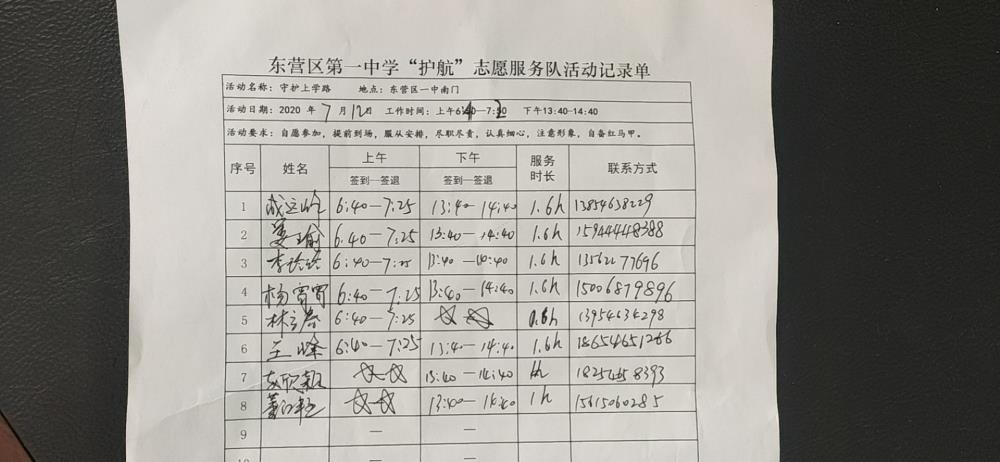 东营区第一中学“护航”志愿服务队活动记录单
活动名称：守护上学路 地点：东营区一中南门
活动日期：2020 年 7 月 12日 工作时间：上午6:40—7: 下午13:40-14:40
活动要求：自愿参加，提前到场，服从安排，尽职尽责，认真细心，注意形象，自备红马甲。
序号 姓名 上午 签到—签退 下午 签到—签退 服务时长 联系方式
1 6:40—7:25 13:40—14:40 1.6h 13854638229
2 6:40—7:25 13:40—14:40 1.6h 15944448388
3 李玲玲 6:40—7:25 13:40—14:40 1.6h 13562277696
4 杨霄霄 6:40—7:25 13:40—14:40 1.6h 15006879896
5 林 春 6:40—7:25 — 0.6h 13954634298
6 王峰 6:40—7:25 13:40—14:40 1.6h 18654651286
7 — 13:40—14:40 1h 18254658393
8 — 13:40—14:40 1h 15615060285
9 — —
10